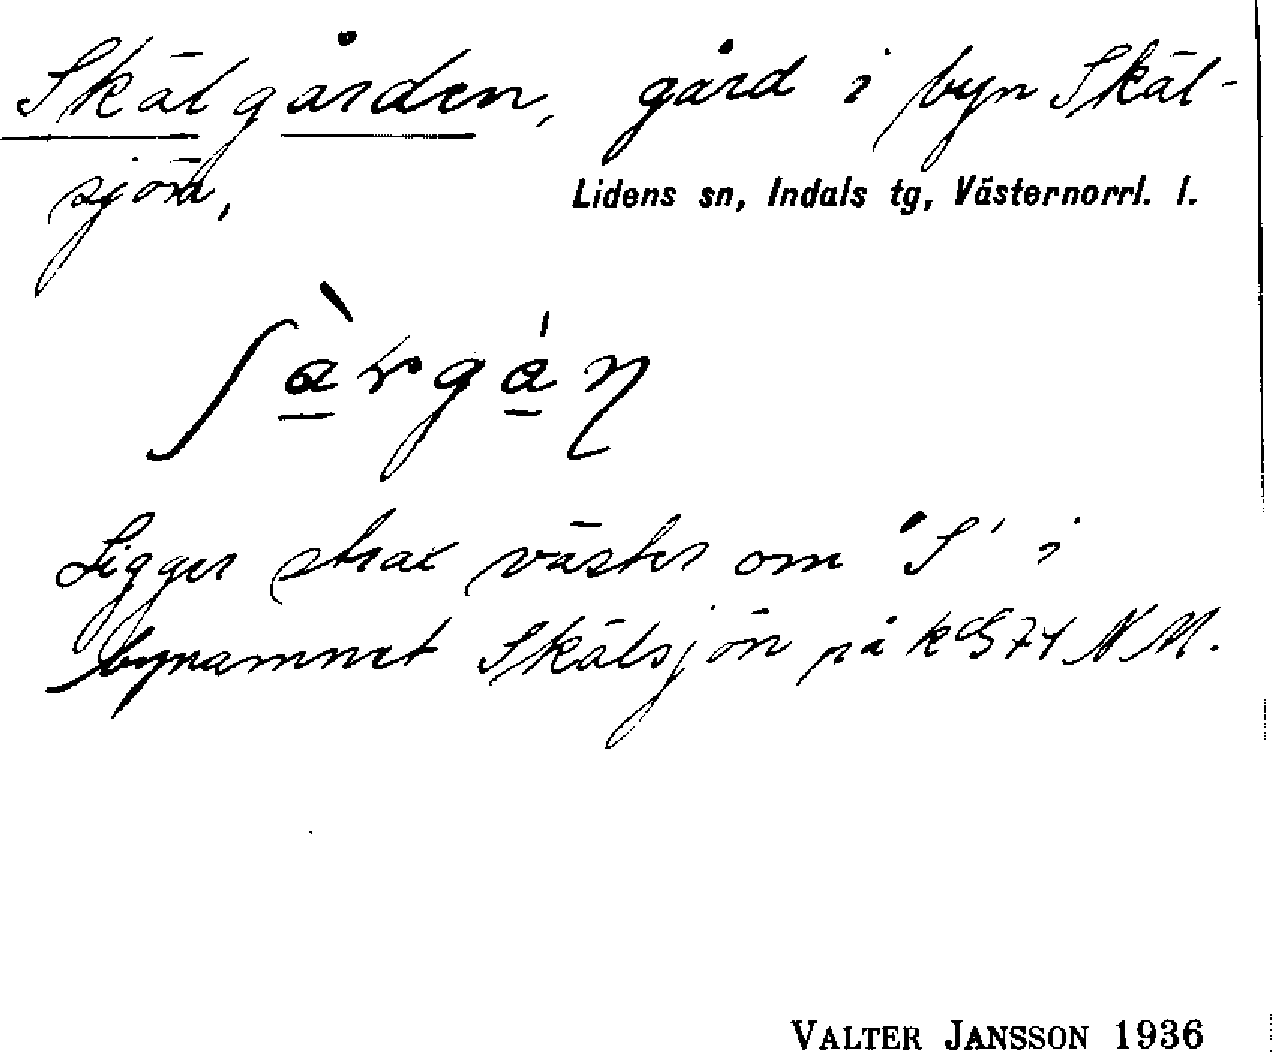 Skälgården, gård i byn Skäl-
sjön,
Lidens sn, Indals tg, Västernorrl. l.
Ligger strax väster om 'S' i
bynamnet Skälsjön på k S74 NM.
VALTER JANSSON 1936